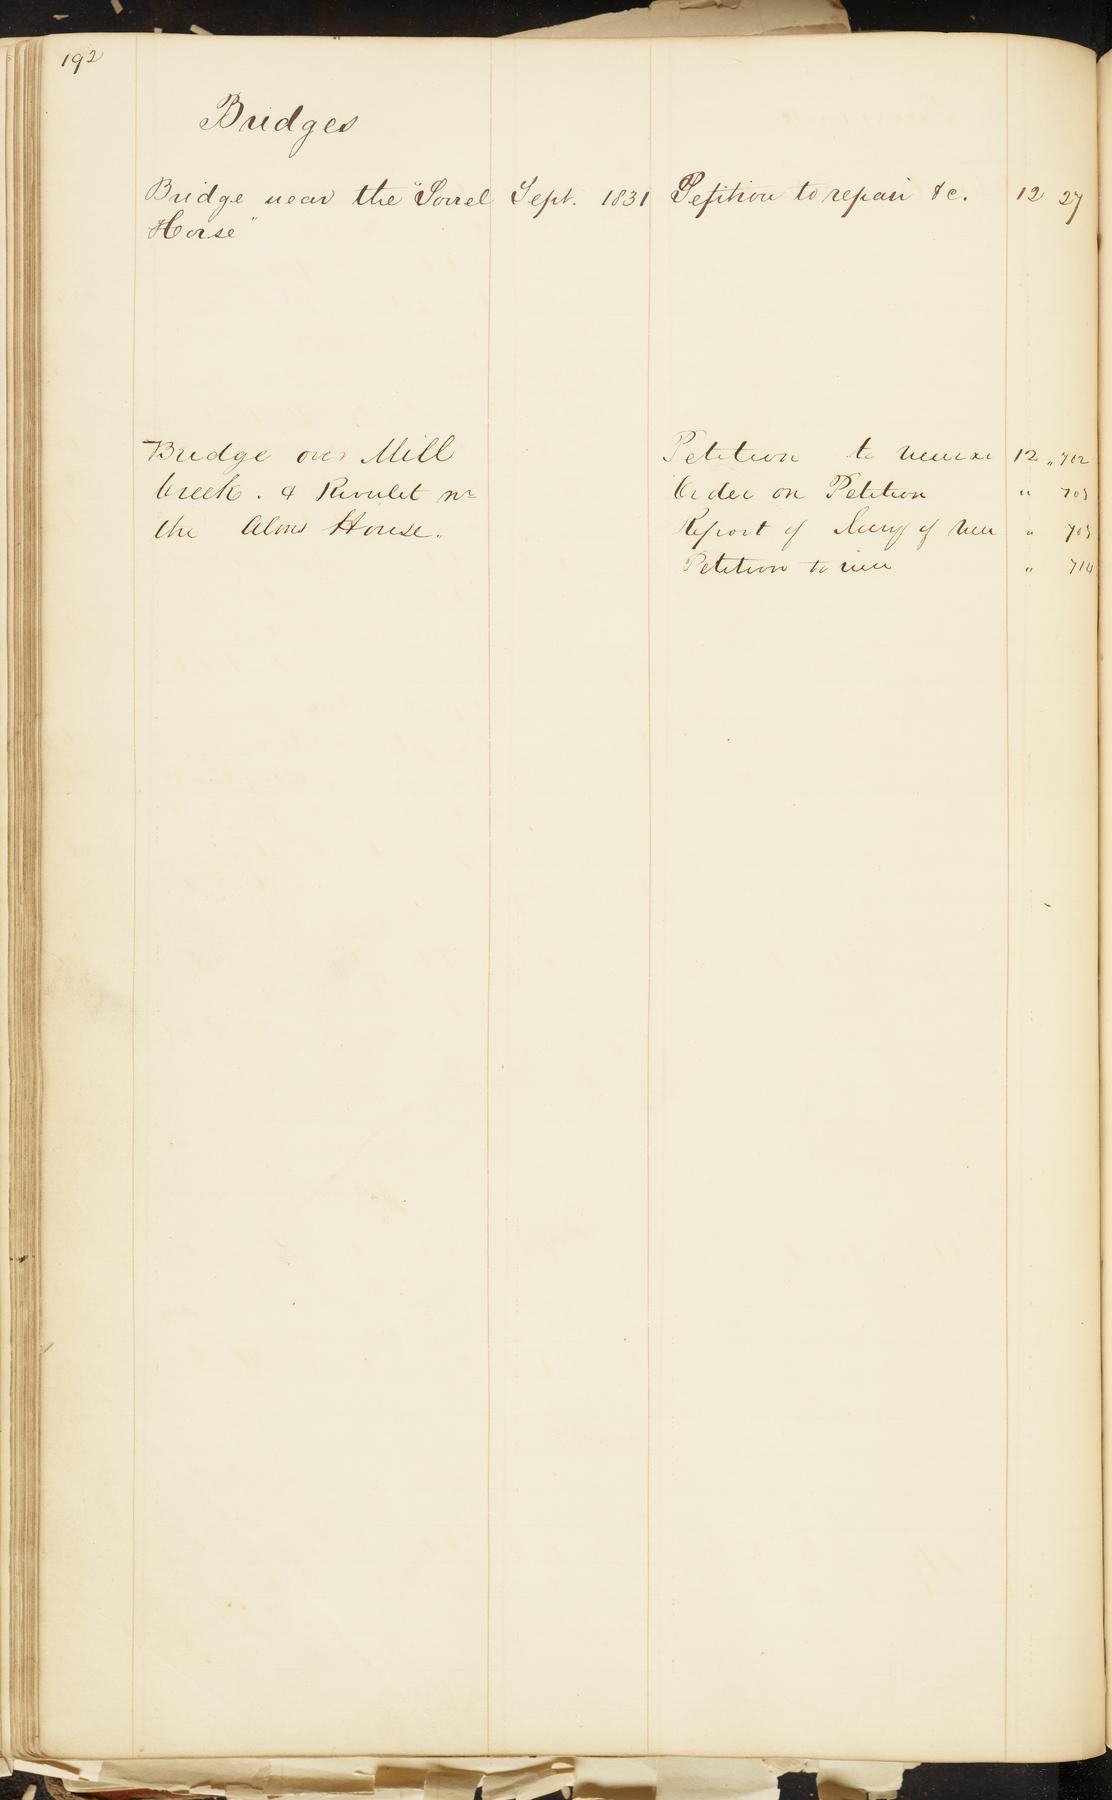 192
Bridges
Bridge near the "Sorrel Sept. 1831 Petition to repair &c. 12 27
Horse"
Bridge over Mill Petition to 12 " 702
Creek. & Rivulet nr Order on Petition " 703
the Alms House. Report of Jury of View " 703
Petition to view " 710